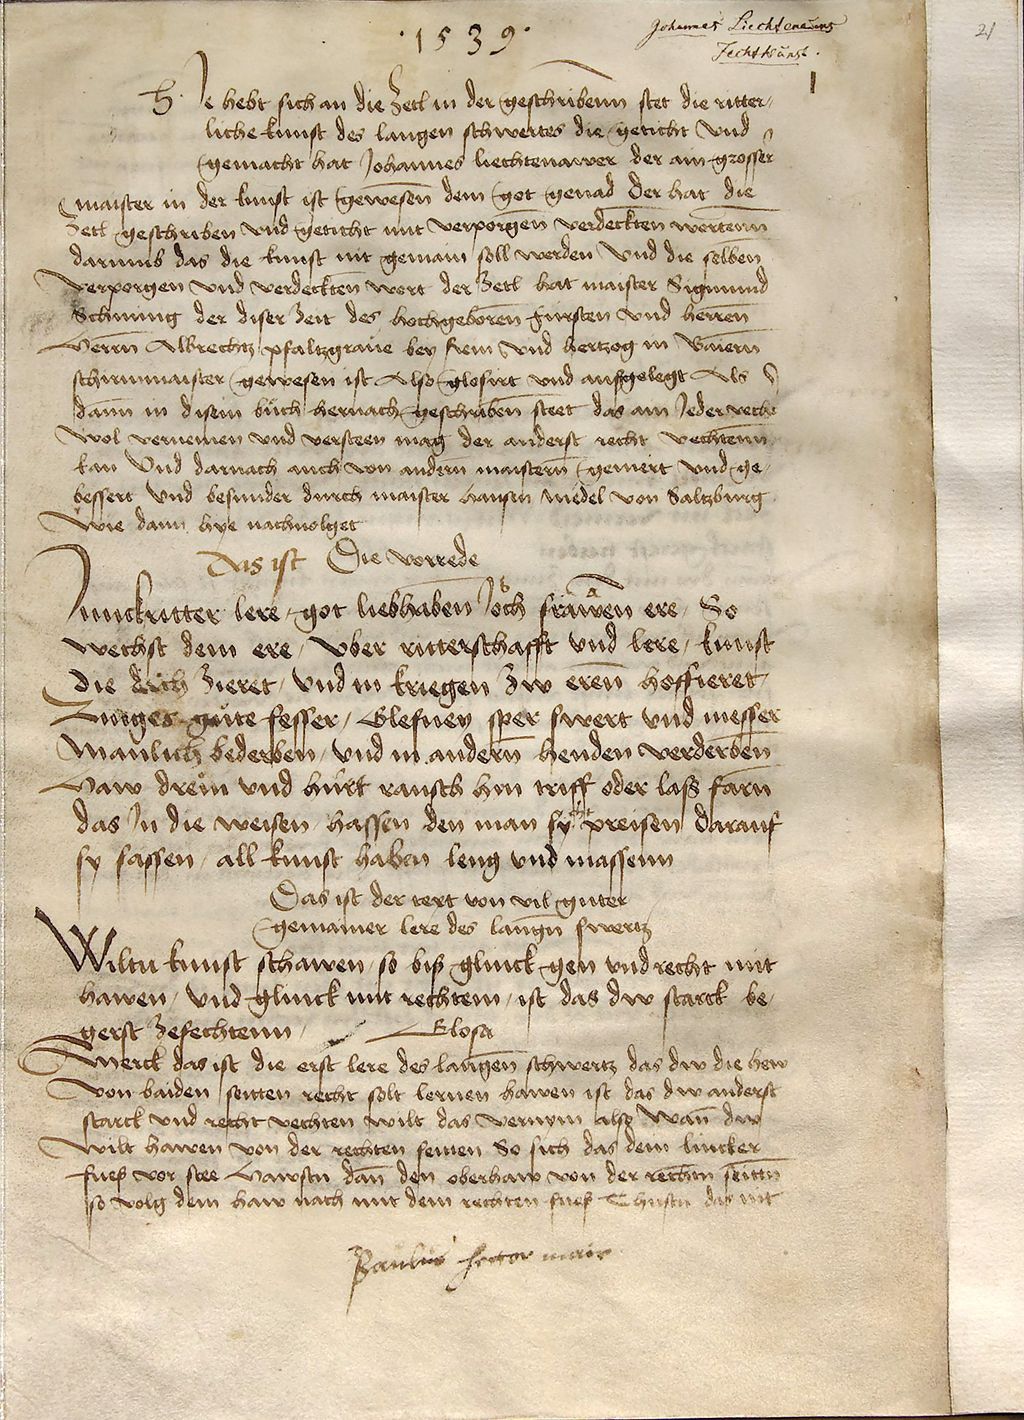 · 1539 ·
Johannes Liechtenauers
Fechtkunst.
21
1
Hie hebt sich an die Zetl in der geschribenn stet die ritter,
liche kunst des langen schwertes die geticht Und
gemacht hat Johannes liechtenawer der ain grosser
maister in der kunst ist gewesen dem got genad Der hat die
Zetl geschriben und geticht mit verporgen verdeckten wortenn
darumb das die kunst nit gemain soll werden Und die selben
verporgen und verdeckten wort der Zetl hat maister Sigmund
Schining der diser Zeit des hochgeboren fürsten und herren
Herrn Albrechtz pfaltzgraue bey Rein Und hertzog in Baiern
schirmmaister gewesen ist Also glosirt und aufgelegt Als
dann in disem buch hernach geschriben steet das ain Jeder
wol vernemen und versteen mag der anderst recht vechtenn
kan Und darnach auch von andern maistern gemert und ge,
bessert Und besunder durch maister hansen medel von Saltzburg
wie dann hye nachvolget
Das ist Die vorrede
Junckritter lere, got liebhaben Joch frawen ere, So
wechst dein ere, Vber ritterschafft und lere, kunst
die dich Zieret, und in kriegen Zw eren hoffieret
Ringes gute fesser, Glefney sper swert und messer
Manlich bederben, und in andern henden verderben
Haw drein und hurt rausch hin triff oder lass farn
das In die weisen hassen den man sy preisen darauf
sy fassen, all kunst haben leng und massenn
Das ist der text von vil guter
gemainer lere des langen swertz
Wiltu kunst schawen, so bis glinck gen und recht mit
hawen, Und glinck mit rechtem, ist das dw starck be,
gerst Zefechtenn, Glosa
Merck das ist die erst lere des langen schwertz das dw die hew
von baiden seitten recht solt lernen hawen ist das dw anderst
starck und recht vechten wilt das vernym also Wan dw
wilt hawen von der rechten seiten So sich das dein lincker
fues vor stee Hawstu dan den oberhaw von der rechtn seittn
so volg dem haw nach mit dem rechten fues Thustu das nit
Paulus hector mair